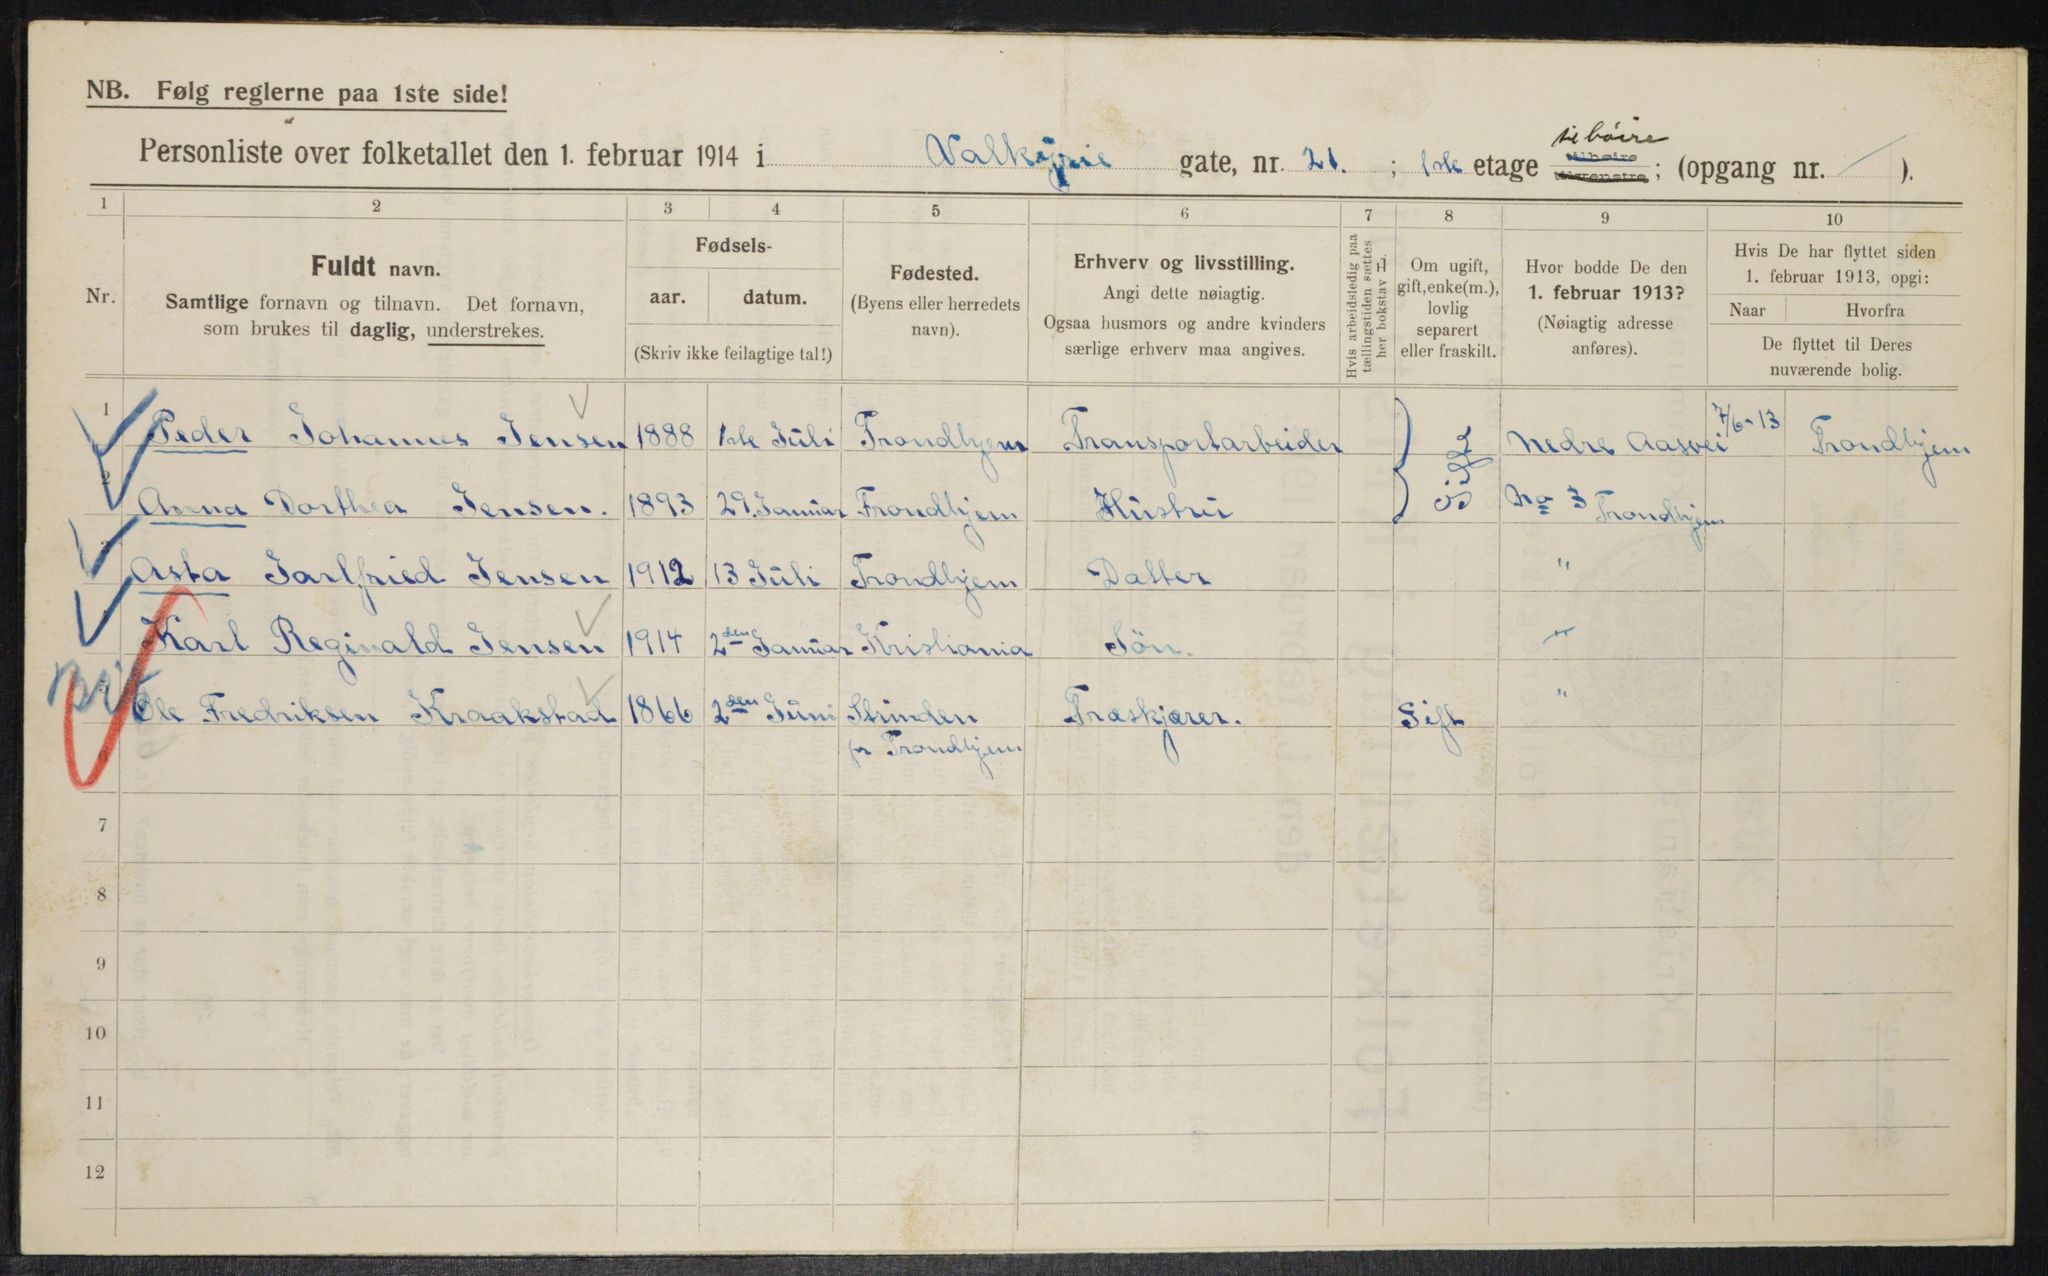 NB. Følg reglerne paa 1ste side!
Personliste over folketallet den 1. februar 1914 i Valkyrie gate, nr. 21. ; 1ste etage til høire ; (opgang nr. / ).
1 2 3 4 5 6 7 8 9 10
Nr.
Fuldt navn.
Samtlige fornavn og tilnavn. Det fornavn,
som brukes til daglig, understrekes.
Fødsels-
aar. datum.
(Skriv ikke feilagtige tal!)
Fødested.
(Byens eller herredets
navn).
Erhverv og livsstilling.
Angi dette nøiagtig.
Ogsaa husmors og andre kvinders
særlige erhverv maa angives.
Hvis arbeidsledig paa
tællingstiden sættes
her bokstav H.
Om ugift,
gift, enke(m.),
lovlig
separert
eller fraskilt.
Hvor bodde De den
1. februar 1913?
(Nøiagtig adresse
anføres).
Hvis De har flyttet siden
1. februar 1913, opgi:
Naar Hvorfra
De flyttet til Deres
nuværende bolig.
1 Peder Johannes Jensen 1888 1ste Juli Trondhjem Transportarbeider Gift Nedre Aasvei 7/6-13 Trondhjem
2 Anna Dorthea Jensen. 1893 29. Januar Trondhjem Hustru No 3 Trondhjem
3 Asta Jarlfried Jensen 1912 13 Juli Trondhjem Datter "
Karl Reginald Jensen 1914 2den Januar Kristiania Søn. "
Ole Fredriksen Kraakstad 1866 2den Juni Strinden Træskjærer. Gift "
6 pr Trondhjem
7
8
9
10
11
12